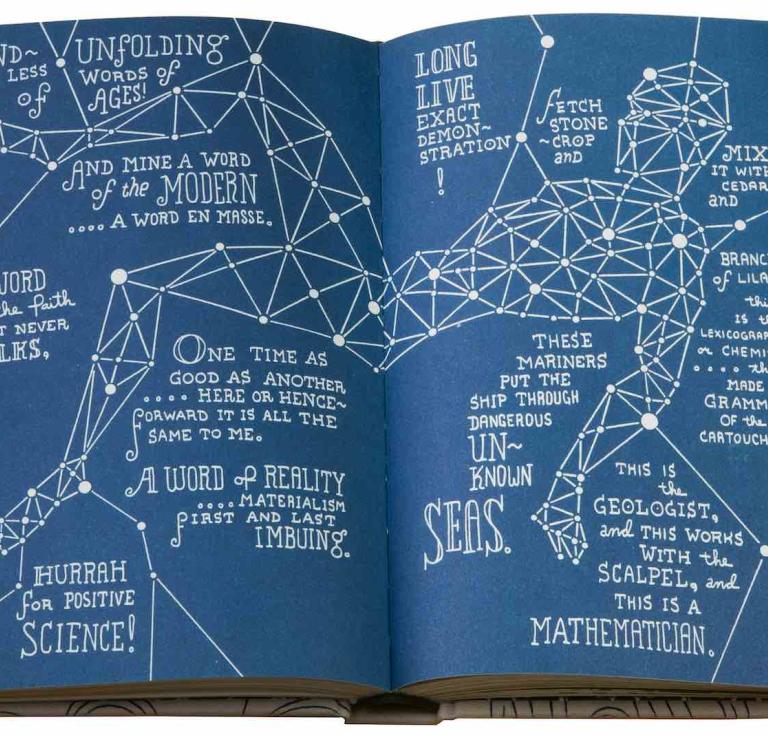 LESS
of
UNFOLDING
WORDS of
AGES!
AND MINE A WORD
of the MODERN
.... A WORD EN MASSE.
WORD
the faith
NEVER
ONE TIME AS
GOOD AS ANOTHER
.... HERE OR HENCE~
FORWARD IT IS ALL THE
SAME TO ME.
A WORD of REALITY
.... MATERIALISM
FIRST AND LAST
IMBUING.
HURRAH
for POSITIVE
SCIENCE!
LONG
LIVE
EXACT
DEMON~
STRATION
!
FETCH
STONE
~CROP
and
MIX
IT WITH
CEDAR
and
BRANC
of LILA
this
IS th
LEXICOGRAP
or CHEMI
.... th
MADE
GRAMM
OF the
CARTOUCH
THESE
MARINERS
PUT THE
SHIP THROUGH
DANGEROUS
UN~
KNOWN
SEAS.
THIS IS
the
GEOLOGIST,
and THIS WORKS
WITH the
SCALPEL, and
THIS IS A
MATHEMATICIAN.